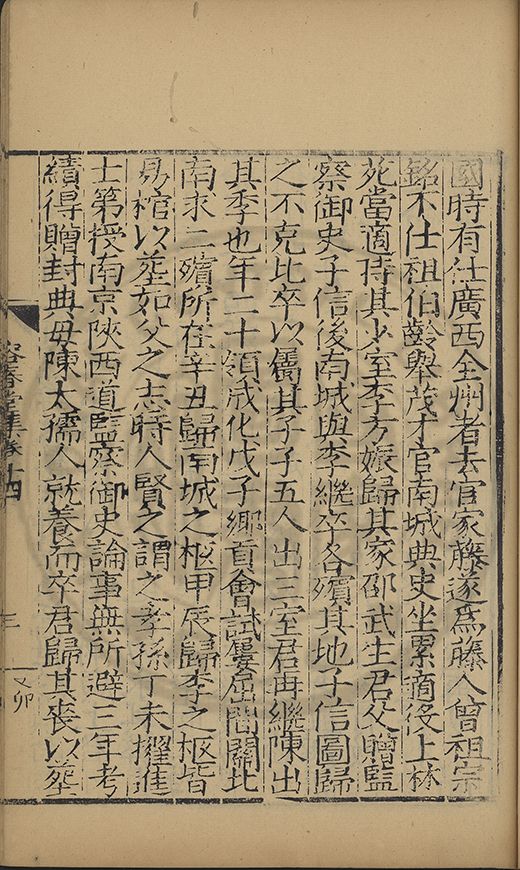 國時有仕廣西全州者去官家藤遂為藤人曾祖宗
銘不仕祖伯齡舉茂才官南城典史坐累謫役上林
苑當適時其少室李方娠歸其家邵武生君父贈監
察御史子信後南城與李繼卒各殯其地子信圖歸
之不克比卒以屬其子子五人出三室君毋繼陳出
其季也年二十領成化戊子鄉貢會試屢屈間關北
南求二殯所在辛丑歸南城之柩甲辰歸李之柩皆
易棺以塟如父之志時人賢之謂之孝孫丁未擢進
士第授南京陝西道監察御史論事無所避三年考
績得贈封典毋陳太孺人就養而卒君歸其喪以塟
容春堂集卷十四
三